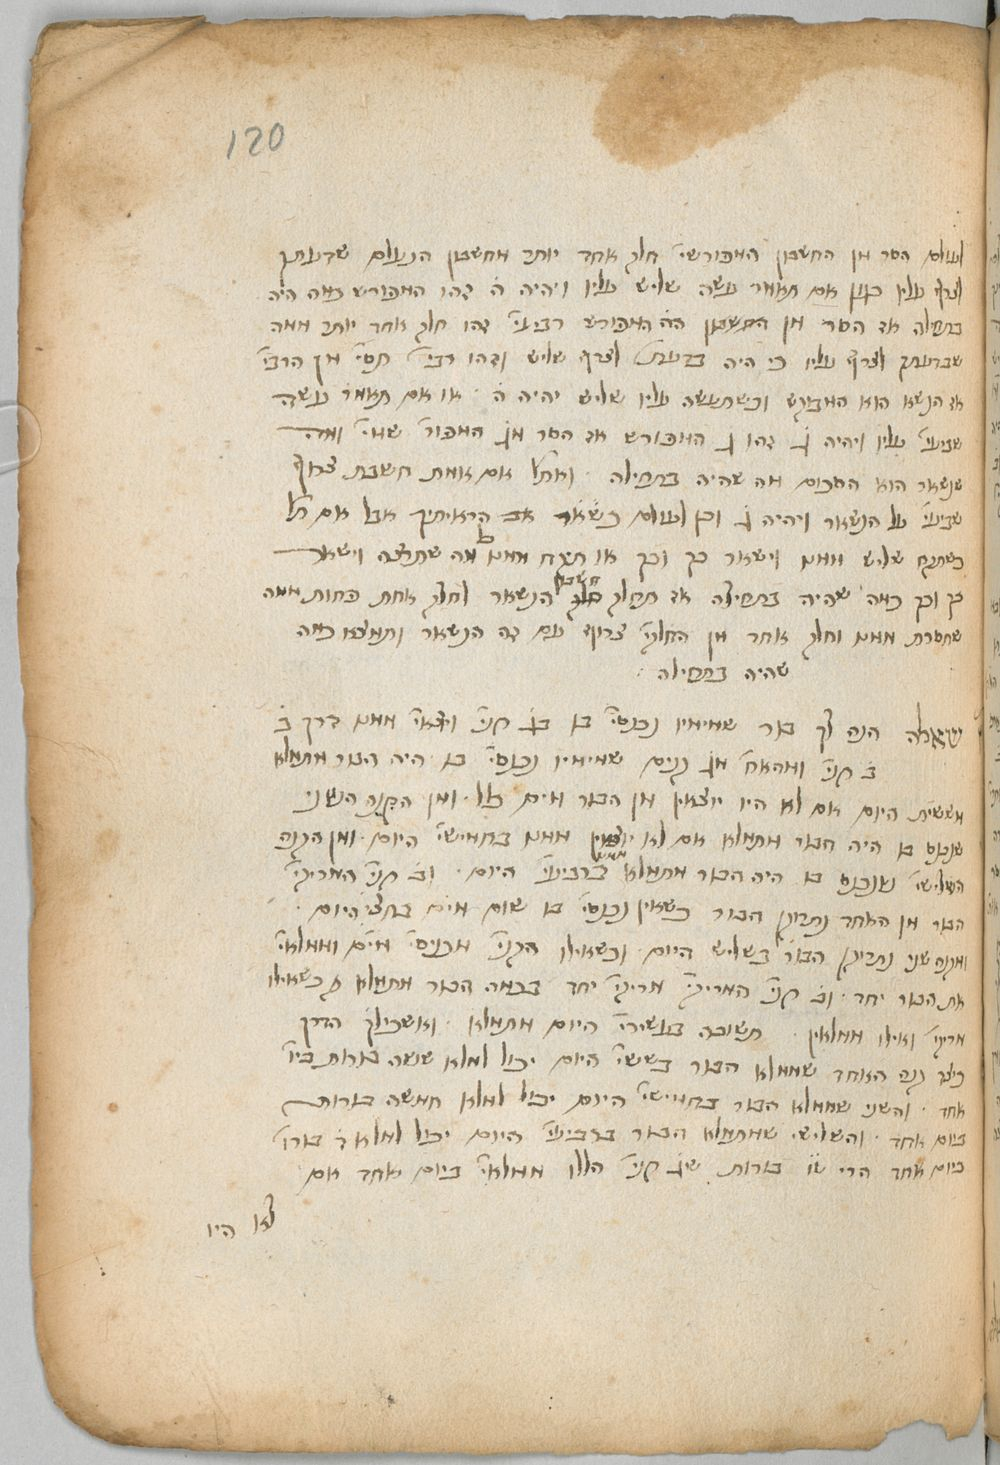 120
לעולם הסר מן החשבון המפורש חלק אחד יותר מחשבון הנעלם שדעתך
לצרף עליו כגון אם תאמר נעשה שליש עליו ויהיה ה̇ דהו המפורש כמה היה
בתחילה אז הסר מן החשבון הה̇ המפורש רביעי׳ דהו חלק אחד יותר ממה
שבדעתך לצרף עליו כי היה בדעת׳ לצרף שליש ודהו רבי׳ תסי׳ מן הרבי׳
אז הנשא הוא המבוקש וכשתעשה עליו שליש יהיה ה̇ . או אם תאמר נעשה
שביעי׳ עליו ויהיה ק̇ דהו ק̇ המפורש אז הסר מק̇ המפור׳ שמי׳ ומה
שנשאר הוא הסכום מה שהיה בתחילה . ואח״כ אם אמת חשבת צרוף
שביעי׳ על הנשאר ויהיה ק̇ וכן לעולם כשאר אב הראיתיך אבל אם ת״ל
כשתקח שליש ממנו וישאר כך וכך או תקח ממנו מה שתרצה וישאר
כך וכך כמה שהיה בתחילה אז תחלק חשבון הנשאר לחלק אחת פחות ממה
שחסרת ממנו וחלק אחד מן החלקי׳ צרוף עם זה הנשאר ותמצא כמה
שהיה בתחילה :
שאלה הנה לך בור שמימיו נכנסי׳ בו בג̇ קני׳ ויצאי׳ ממנו דרך ב̇
ב̇ קני׳ ומהאח׳ מג̇ קנים שמימיו נכנסי׳ בו היה הבור מתמלא
מששית היום אם לא היו יוצאין מן הבור מים כלל . ומן הקנה השני
שנכנס בו היה הבור מתמלא אם לא יוצאין ממנו בחמישי׳ היום . ומן הקנה
השלישי שנכנס בו היה הבור מתמלא ממנו ברביעי׳ היום . וב̇ קני׳ המריקי׳
הבור מן האחד נתרוקן הבור כשאין נכנסי׳ בו שום מים בחצי היום .
ומקנה שני נתרוקן הבור בשליש היום . וכשאילו הקני׳ מכניסי׳ מים וממלאי׳
את הבור יחד . וב̇ קני׳ המריקי׳ מריקי׳ יחד בכמה הבור מתמלא כשאילו
מריקי׳ ואילו ממלאין . תשובה בעשירי׳ היום מתמלא . ואשכילך הדרך
כיצד קנה האחד שממלא הבור בששי׳ היום יכול למלא ששה בורות ביו׳
אחד . והשני שממלא הבור בחמישי׳ היום יכול למלא חמשה בורות
ביום אחד . והשלישי שמתמלא הבור ברביעי׳ היום יכול למלא ד̇ בורו׳
ביום אחד הרי ט״ו בורות שג̇ קני׳ הללו ממלאי׳ ביום אחד אם
לא היו